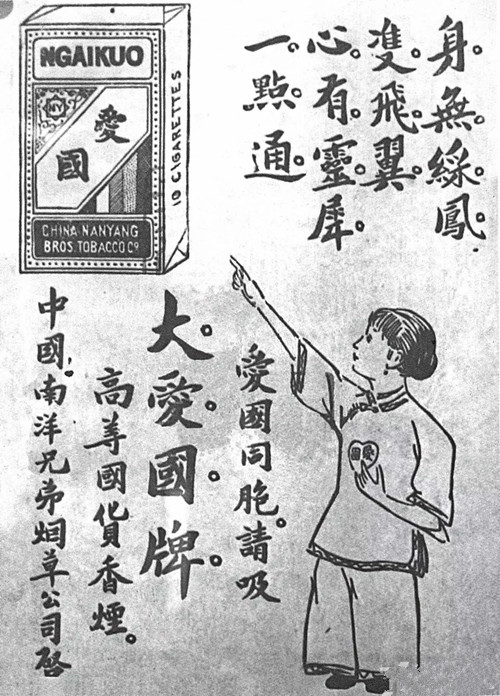 身無綵鳳
雙飛翼
心有靈犀
一點通
NGAIKUO
NY
愛
國
10 CIGARETTES
CHINA NANYANG
BROS. TOBACCO Cº
愛國同胞。請吸
大愛國牌
高等國貨香煙。
中國南洋兄弟烟草公司啓
愛國